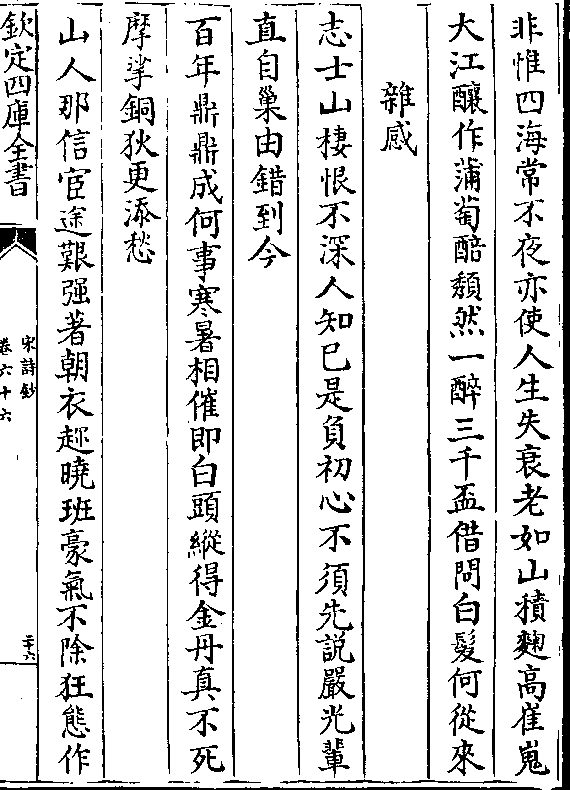 非惟四海常不夜亦使人生失衰老如山積麴高崔嵬
大江釀作蒲萄醅頽然一醉三千盃借問白髮何從來
雜感
志士山棲恨不深人知已是負初心不須先説嚴光輩
直自巢由錯到今
百年鼎鼎成何事寒暑相催即白頭縱得金丹真不死
摩挲銅狄更添愁
山人那信宦途艱强著朝衣趂曉班豪氣不除狂態作
欽定四庫全書
宋詩鈔
卷六十六
二十六